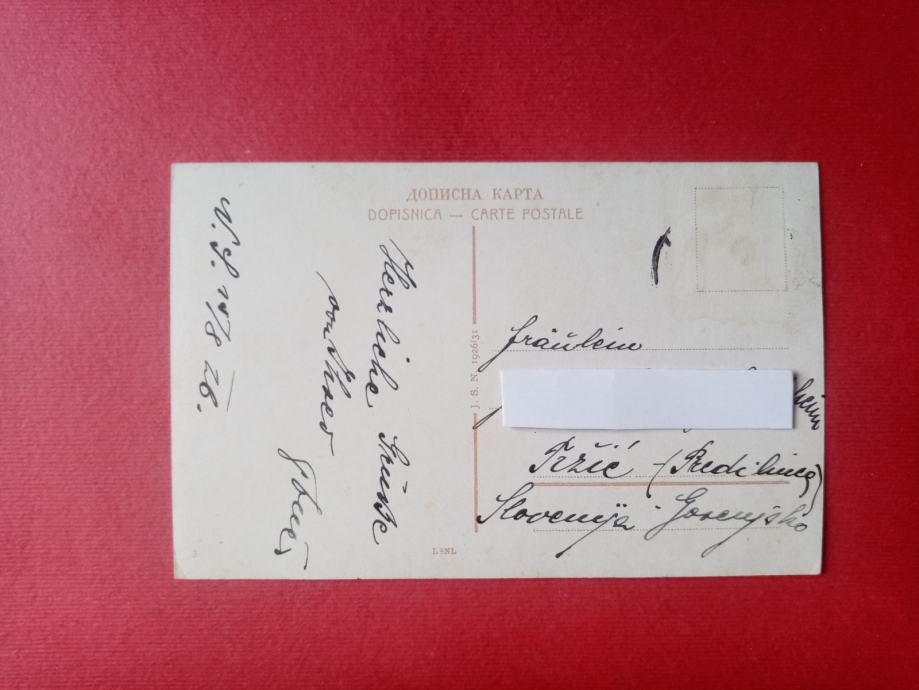 ДОПИСНА КАРТА
DOPISNICA — CARTE POSTALE
N. S. 15/8 26.
Herzliche Grüße
von Ihrer
J. S. N. 1926/31
Fräulein
Tržić (Predilnica)
Slovenija Gorenjsko
L&NL
3